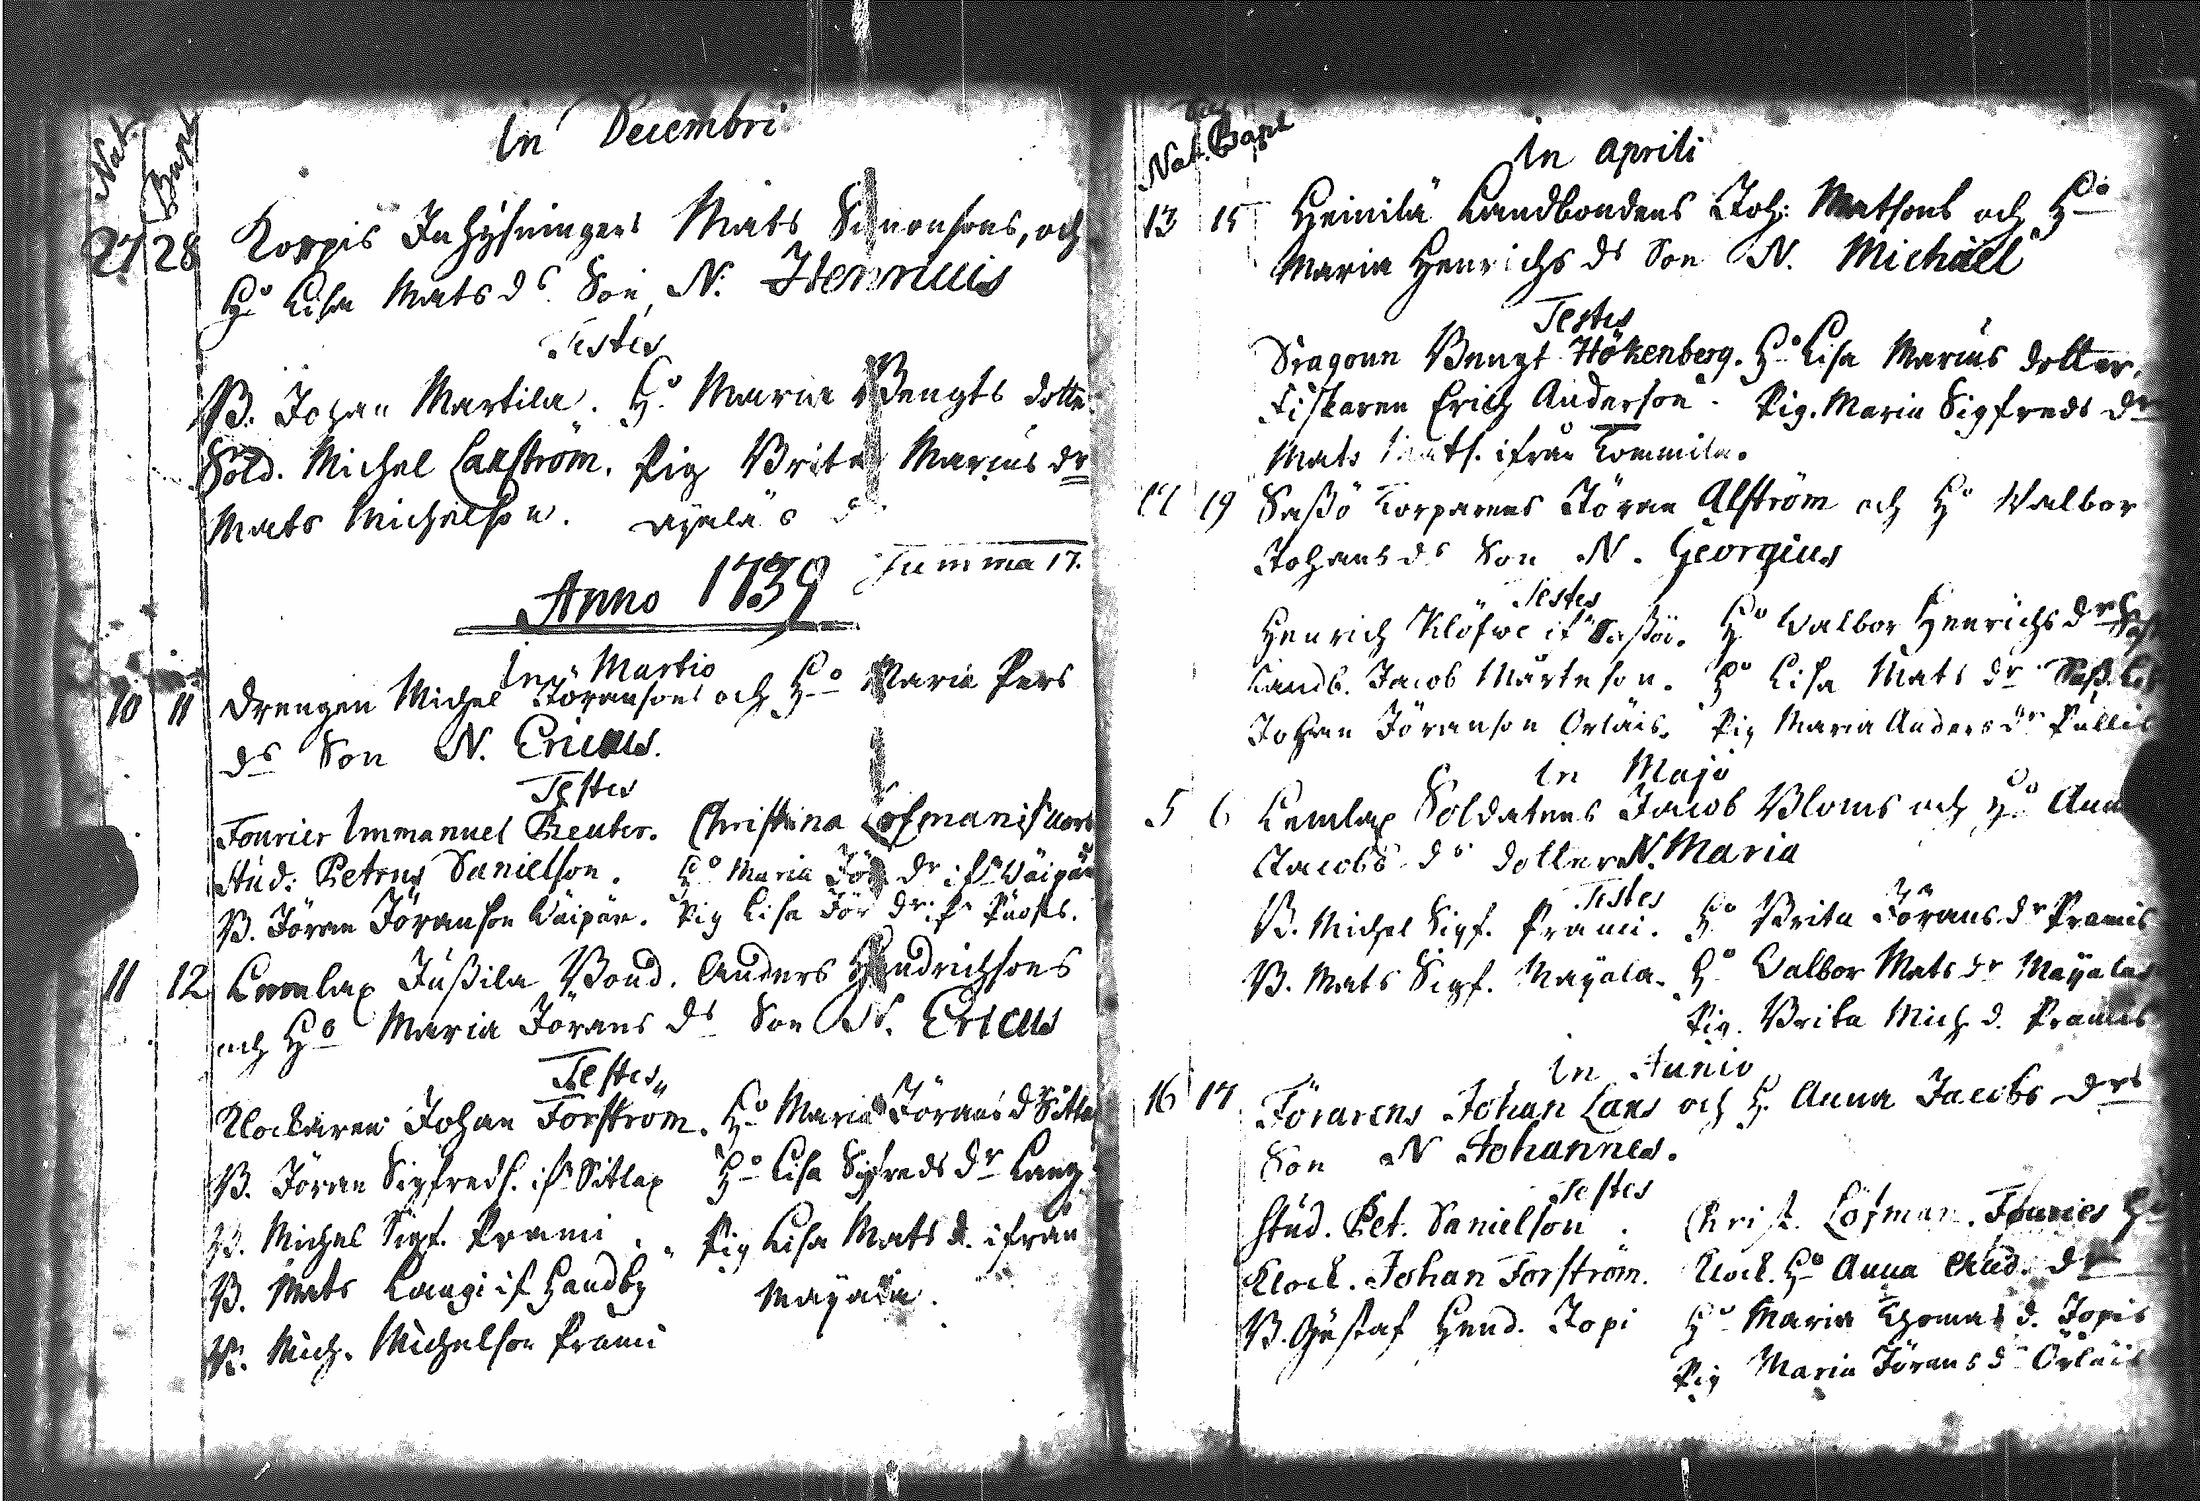 Nat. Bapt
In Decembri
27 28 Korpis Inhysninges Mats Simonsons, och
Ho Lisa Mats ds Son N. Henricus
Testes
B. Johan Martila. Ho Maria Bengts dotte
Sold. Michel Carström. Pig Brita Marcus dr
Mats Michelson.
Summa 17.
Anno 1739
In Martio
10 11 Drengen Michel Jöransons och Ho Maria Pers
ds Son N. Ericus.
Testes
Fourier Immanuel Reuter. Christina Löfman
Stud. Petrus Danielson. Ho Maria Jör dr ifr Wäipär
B. Jöran Jöranson Wäipär. Pig Lisa Jör dr
11 12 Lemlax Jußila Bond. Anders Hendrichsons
och Ho Maria Jörans ds Son N. Ericus
Testes
Klockaren Johan Forström. Ho Maria Jörans dr Sitla
B. Jöran Sigfreds. ifr Sitlax Ho Lisa Sigfreds dr Lang
B. Michel Sigf. Prami. Pig Lisa Mats d. ifrån
B. Mats Langi if Handby Mayala.
B. Mich. Michelson Prami
Nat. Bapt
In Aprili
13 15 Heinilä Landbondens Joh: Matsons och Ho
Maria Henrichs ds Son N. Michäel
Testes
Dragoun Bengt Hökenberg. Ho Lisa Marcus dotter,
Fiskaren Erich Anderson. Pig. Maria Sigfreds dr
Mats Mats. ifrån Tommila.
17 19 Saßö Torparens Jöran Alström och Ho Walbor
Johans ds Son N. Georgius
Testes
Henrich Klöfwe if Saßö. Ho Walbor Henrichs dr
Landb. Jacob Mårtenson. Ho Lisa Mats dr
Johan Jöranson Orläis. Pig Maria Anders dr
In Majo
5 6 Lemlax Soldatens Jacob Bloms och Ho Ann
Jacobs ds dotter N. Maria
Testes
B. Michel Sigf. Prami. Ho Brita Jörans dr Pramis
B. Mats Sigf. Mayala. Ho Walbor Mats dr Mayalas
Pig. Brita Mich d. Pramis
In Junio
16 17 Förarens Johan Lans och H. Anna Jacobs drs
Son N Johannes.
Testes
Stud. Pet. Danielson. Christ. Löfman. Fouries Ho
Klock. Johan Forström. Klock. Ho Anna And. dr
B. Gustaf Hend. Jopi Ho Maria Thomas d. Jopis
Pig Maria Jörans dr Orläis